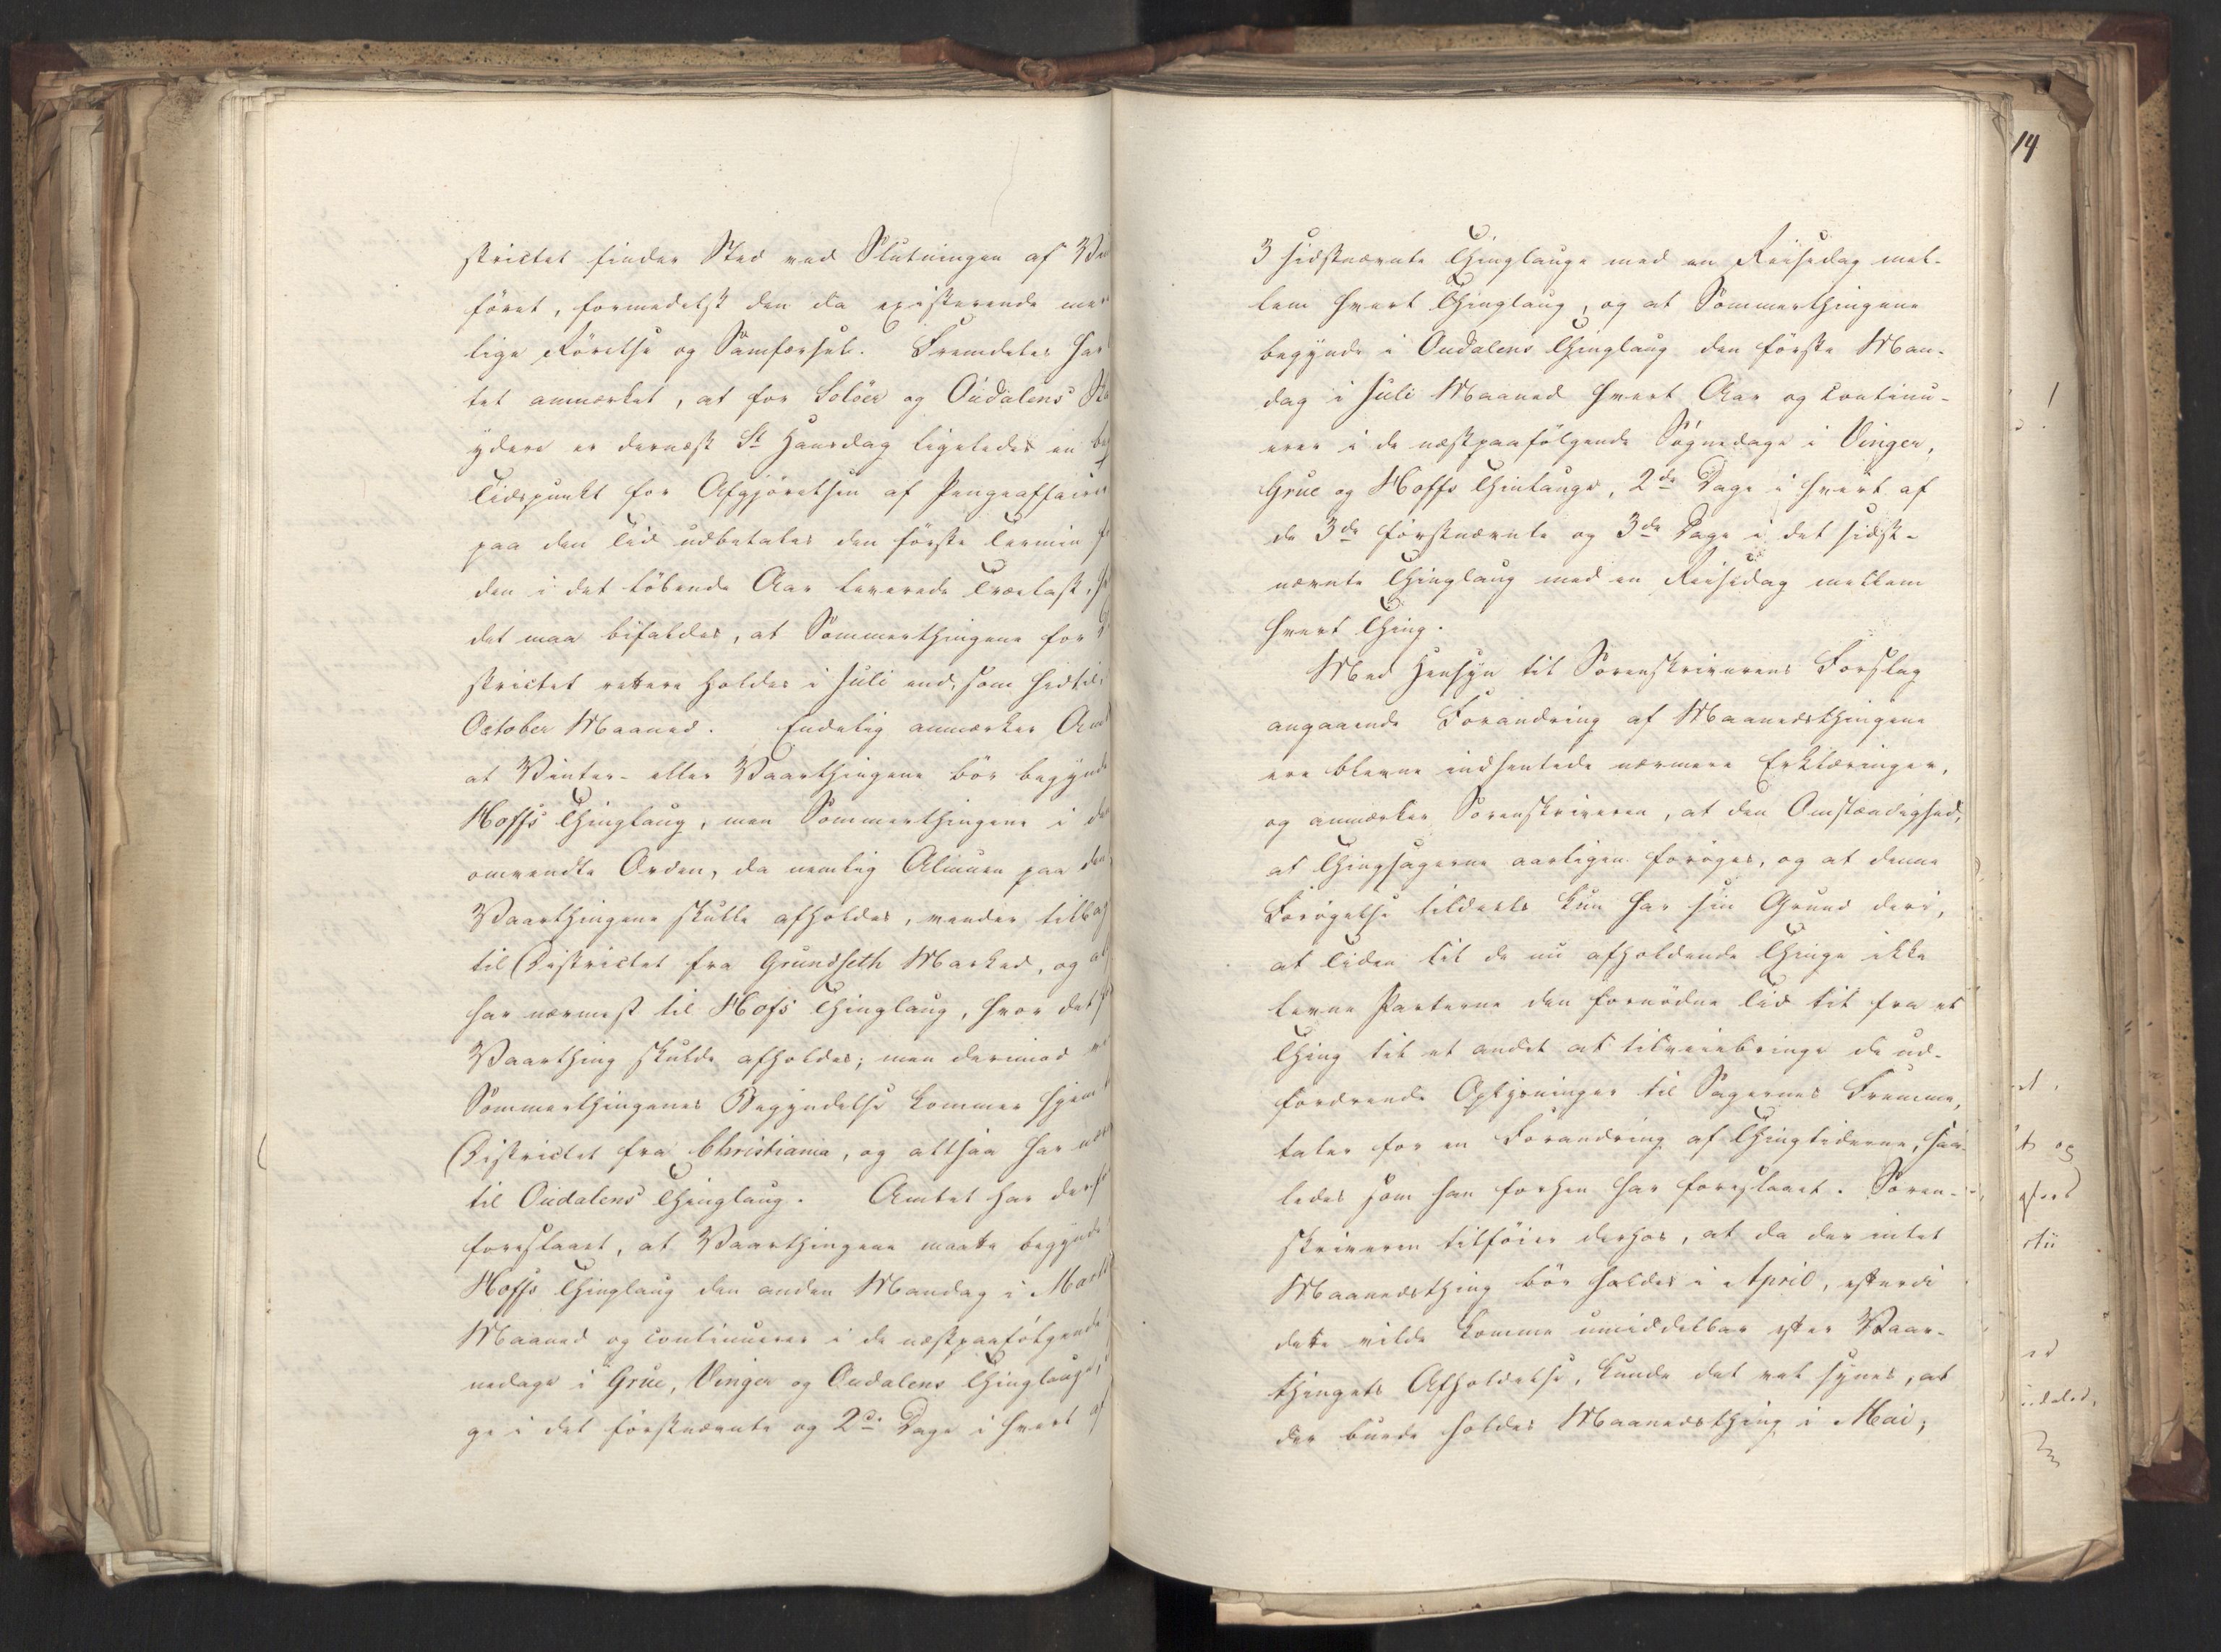 strictet finder Sted ved Slutningen af Vin
föret, formedelst den da existerende mer
lige Rörelse og Samfærsel. Fremdeles har
tet anmærket, at for Solöer og Oudalens
ydere er dernæst St Hansdag ligeledes en
Tidspunkt for Afgjörelsen af Pengeaffairer
paa den Tid udbetales den förste Termin
den i det löbende Aar leverede Trælast,
det maa bifaldes, at Sommerthingene for
strictet rettere holdes i Juli end, som hidtil,
October Maaned. Endelig anmærker Amt
at Vinter- eller Vaarthingene bör begynde
Hoffs Thinglaug, men Sommerthingene i den
omvendte Orden, da nemlig Almuen paa den
Vaarthingene skulle afholdes, vender tilbag
til Districtet fra Grundseth Marked, og
har nærmest til Hofs Thinglaug, hvor det
Vaarthing skulde afholdes; men derimod
Sommerthingenes Begyndelse kommer hjem
Districtet fra Christiania, og altsaa har
til Oudalens Thinglaug. Amtet har
foreslaaet, at Vaarthingene maatte begynde
Hoffs Thinglaug den anden Mandag i Marts
Maaned og continuerer i de næstpaafölgende
nedage i Grue, Vinger og Oudalens Thinglauge,
ge i det förstnævnte og 2de Dage i hvert af
14
3 sidstnævnte Thinglauge med en Reisedag mel-
lem hvert Thinglaug, og at Sommerthingene
begynde i Oudalens Thinglaug den förste Man-
dag i Juli Maaned hvert Aar og continu-
erer i de næstpaafölgende Sögnedage i Vinger,
Grue og Hoffs Thinlauge, 2de Dage i hvert af
de 3de förstnævnte og 3de Dage i det sidst-
nævnte Thinglaug med en Reisedag mellem
hvert Thing.
Med Hensyn til Sorenskriverens Forslag
angaaende Forandring af Maanedsthingene
ere blevne indhentede nærmere Erklæringer,
og anmærker Sorenskriveren, at den Omstændighed,
at Thingsagerne aarligen foröges, og at denne
Forögelse tildeels kun har sin Grund deri,
at Tiden til de nu afholdende Thinge ikke
levne Parterne den fornödne Tid til fra et
Thing til et andet at tilveiebringe de ud-
fordrende Oplysninger til Sagernes Fremme,
taler for en Forandring af Thingtiderne, saa-
ledes som han forhen har foreslaaet. Soren-
skriveren tilföier derhos, at da der intet
Maanedsthing bör holdes i April, efterdi
dette vilde komme umiddelbar efter Vaar-
thingets Afholdelse, kunde det vel synes, at
der burde holdes Maanedsthing i Mai;